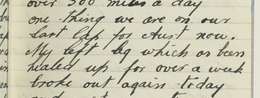 over 300 miles a day
one thing we are on our
last lap for Aust now.
My left leg which as been
healed up for over a week
broke out again today